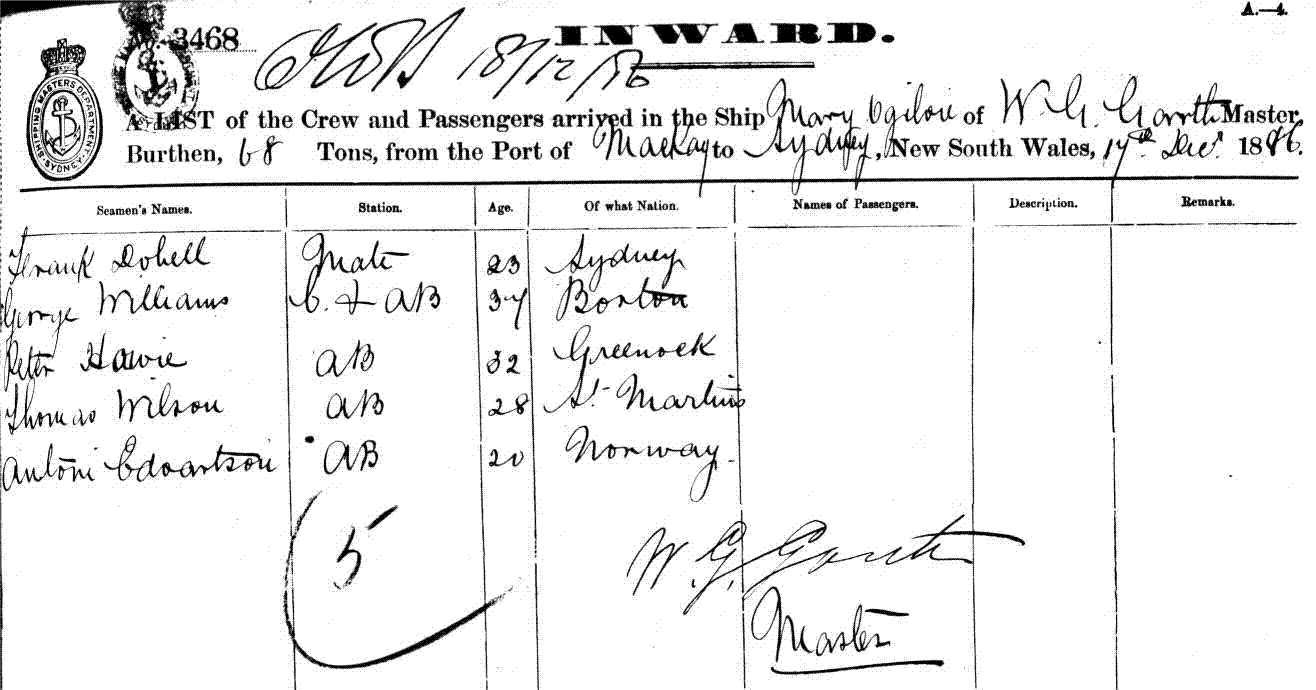 A.—4.
3468
18/12/86
INWARD.
SHIPPING MASTERS DEPARTMENT
A LIST of the Crew and Passengers arrived in the Ship Mary Ogilvie of W. G. Master,
Burthen, 68 Tons, from the Port of Mackay to Sydney, New South Wales, 17th Decr 1886.
Seamen's Names. Station. Age. Of what Nation. Names of Passengers. Description. Remarks.
Frank Dobell Mate 23 Sydney
George Williams C. & AB 37 Boston
Peter Howie AB 32 Greenock
Thomas Wilson AB 28 St Martins
Antoni Edvartson AB 20 Norway
5
W. G.
Master